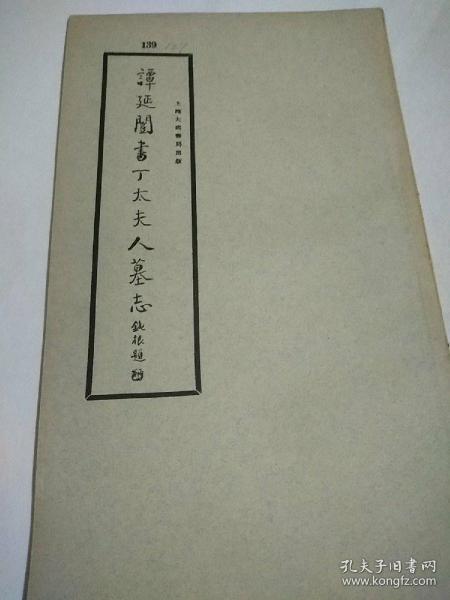 139
譚延闓書丁太夫人墓志
鈍根題
上海大衆書局出版
孔夫子旧书网
www.kongfz.com